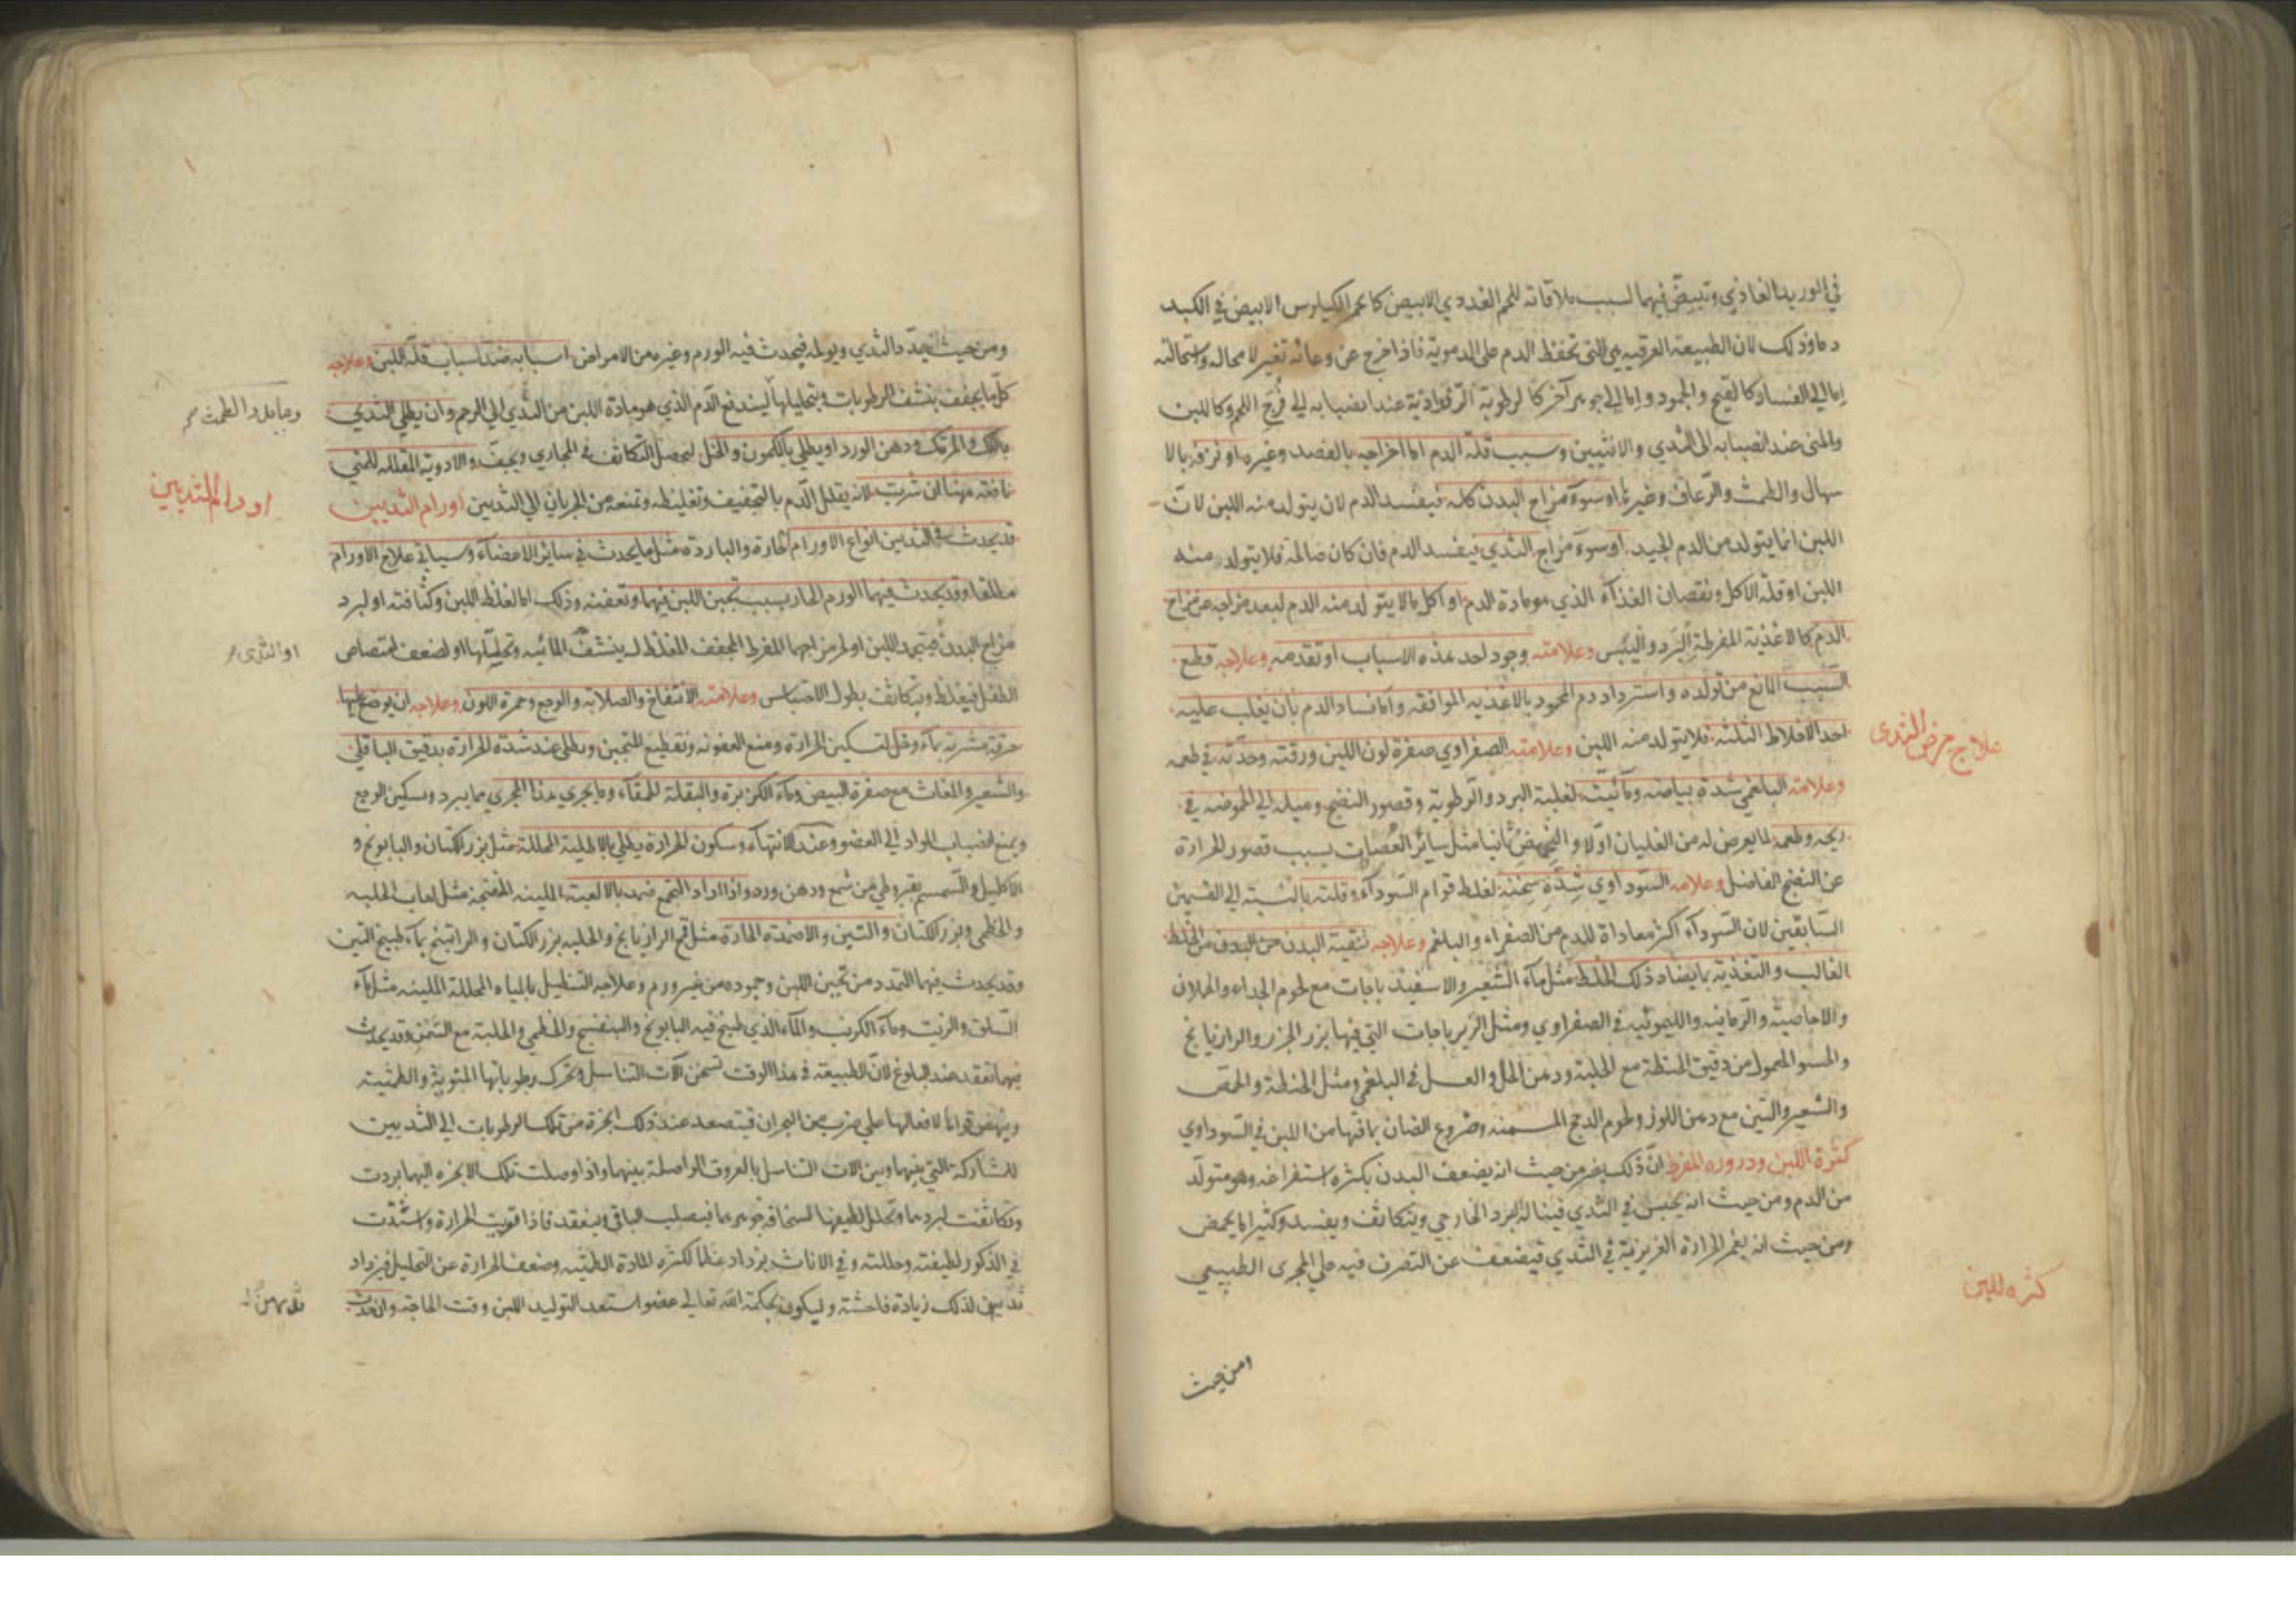 في الوريد الغاذي وتبيض فيهما لسبب ملاقاته للحم الغددي الابيض كما يحمر الكيلوس الابيض في الكبد
دما وذلك لان الطبيعة العرقية هي التي تحفظ الدم على الدموية فاذا خرج عن وعائه تغير لا محاله واستحالته
اما الي الفساد كالقيح والجمود واما الي جوهر آخر كالرطوبة عند انصبابه الي فرج اللحم وكاللبن
والمنى عند انصبابه الى الثدي والانثيين وسبب قلة الدم اما اخراجه بالفصد وغيره او نزفه بالا
سهال والطمث والرعاف وغيرها او سوء مزاج البدن كله فيفسد الدم لان يتولد منه اللبن لان
اللبن انما يتولد من الدم الجيد او سوء مزاج الثدي فيفسد الدم فان كان صالحا فلا يتولد منه
اللبن او قلة الاكل ونقصان الغذاء الذي هو مادة الدم او اكل ما لا يتولد منه الدم لبعد مزاجه عن مزاج
الدم كالاغذية المفرطة البرد واليبس وعلامته وجود احد هذه الاسباب او تقدمه وعلاجه قطع
السبب المانع من تولده واسترداد دم المحمود بالاغذيه الموافقه واما فساد الدم بان يغلب عليه
احد الاخلاط الثلثه فلا يتولد منه اللبن وعلامته الصفراوي صفرة لون اللبن ورقته وحدته في طعمه
علاج مرض الثدى
وعلامته البلغمي شدة بياضه ومائيته لغلبة البرد والرطوبة وقصور النضج وميله الي الحموضه في
ريحه وطعمه لما يعرض له من الغليان اولا والتحميض ثانيا مثل سائر العصارات بسبب قصور الحرارة
عن النضج الفاضل وعلامه السوداوي شدة ثخنه لغلظ قوام السوداء وقلته بالنسبة الي القسمين
السابقين لان السوداء اكثر معاداة للدم من الصفراء والبلغم وعلاجه تنقية البدن من الخلط
الغالب والتغذيه بما يضاد ذلك الخلط مثل ماء الشعير والاسفيد باجات مع لحوم الجداء والحملان
والاجاصية والرمانيه والليمونيه في الصفراوي ومثل الزيرباجات التي فيها بزر الجزر والرازيانج
والحسو المعمول من دقيق الحنطة مع الحلبة ودهن الخل والعسل في البلغمي ومثل الحنطة والحمص
والشعير والتين مع دهن اللوز ولحوم الدجج المسمنه وضروع الضان بما فيها من اللبن في السوداوي
كثرة اللبن ودروره المفرط ان ذلك يضر من حيث انه يضعف البدن بكثرة استفراغه وهو متولد
من الدم ومن حيث انه يحتبس في الثدي فيناله البرد الخارجي ويتكاثف ويفسد وكثيرا ما يحمض
ومن حيث انه يغمر الحرارة الغريزية في الثدي فيضعف عن التصرف فيه على المجرى الطبيعي
كثره اللبن
ومن حيث
ومن حيث انه يمدد الثدي ويولمه فيحدث فيه الورم وغيره من الامراض اسبابه ضد اسباب قلة اللبن وعلاجه
كل ما يجفف بنشف الرطوبات وبتحليلها ليندفع الدم الذي هو مادة اللبن من الثدي الي الرحم وان يطلي الثدي
بالمرتك ودهن الورد او يطلي بالكمون والخل ليحصل التكاثف في المجاري ويجف والادوية المقللة للمني
نافعة ههنا ان شربت لانه يقلل الدم بالتجفيف وتغليظه وتمنعه من الجريان الي الثديين اورام الثديين
اورام الثديين
قد يحدث في الثديين انواع الاورام الحارة والباردة مثل ما يحدث في سائر الاعضاء وسياتي علاج الاورام
مطلقا وقد يحدث فيهما الورم الحار بسبب تجبن اللبن فيهما وتعفنه وذلك اما لغلظ اللبن وكثافته او لبرد
مزاج البدن فيتجمد اللبن او لحر مزاجهما المفرط المجفف المغلظ له بنشف المائيه وتحليلها او لضعف امتصاص
او الثدى
الطفل فيغلظ ويتكاثف بطول الاحتباس وعلامته الانتفاخ والصلابه والوجع وحمرة اللون وعلاجه ان يوضع عليها
خرقة مشربه بماء وخل لتسكين الحرارة ومنع العفونه وتقطيع التجبن ويطلى عند شدة الحرارة بدقيق الباقلي
والشعير والمغاث مع صفرة البيض وماء الكزبرة والبقلة الحمقاء وما يجري هذا المجري مما يبرد ويسكن الوجع
ويمنع انصباب المواد الي العضو وعند الانتهاء وسكون الحرارة يطلي بالاطلية المحللة مثل بزر الكتان والبابونج و
الاكليل والسمسم بقيروطي من شمع ودهن ورد واذا اراد التجمع ضمد بالالعبة الملينه المنضجه مثل لعاب الحلبه
والخطمى وبزر الكتان والتين والاضمدة الحارة مثل الرازيانج والحلبه بزر الكتان والراتينج بماء طبيخ التين
وقد يحدث فيها التمدد من تجبن اللبن وجموده من غير ورم وعلاجه التنطيل بالمياه المحللة الملينه مثل ماء
السلق والزيت وماء الكرنب والماء الذي طبخ فيه البابونج والبنفسج والخطمي والحلبة مع السمن وقد يحدث
فيهما تعقد عند البلوغ لان الطبيعة في هذا الوقت تسخن آلات التناسل وتحرك رطوباتها المنوية والطمثية
وينهض قواها لافعالها علي ضرب من البحران فيتصعد عند ذلك ابخرة من تلك الرطوبات الي الثديين
للمشاركة التي بينهما وبين الات التناسل بالعروق الواصلة بينهما واذا وصلت تلك الابخره اليهما بردت
وتكاثفت لبردهما وتحلل لطيفها لسخافة جوهرهما فيصلب الباقي وينعقد فاذا قويت الحرارة واشتدت
في الذكور لطيفته وحللته وفي الاناث يزداد عظما لكثره المادة الطمثيه وضعف الحرارة عن التحليل فيزداد
ثديهن لذلك زيادة فاحشة وليكون بحكمة الله تعالى عضو استعد لتوليد اللبن وقت الحاجة وان حدث